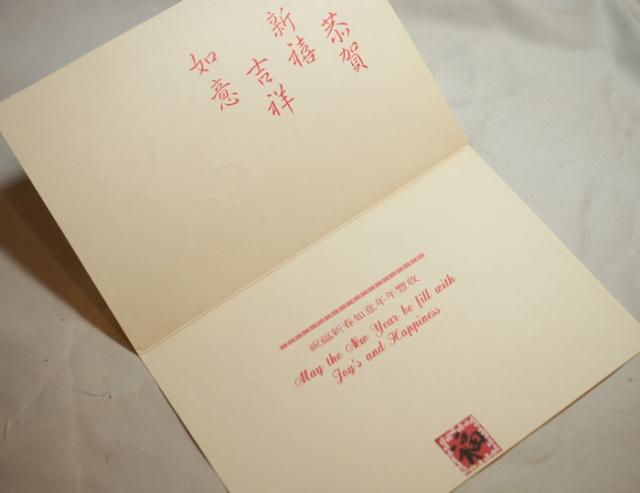 恭賀
新禧
吉祥
如意
祝福新春如意年年豐收
May the New Year be fill with
Joy's and Happiness
福